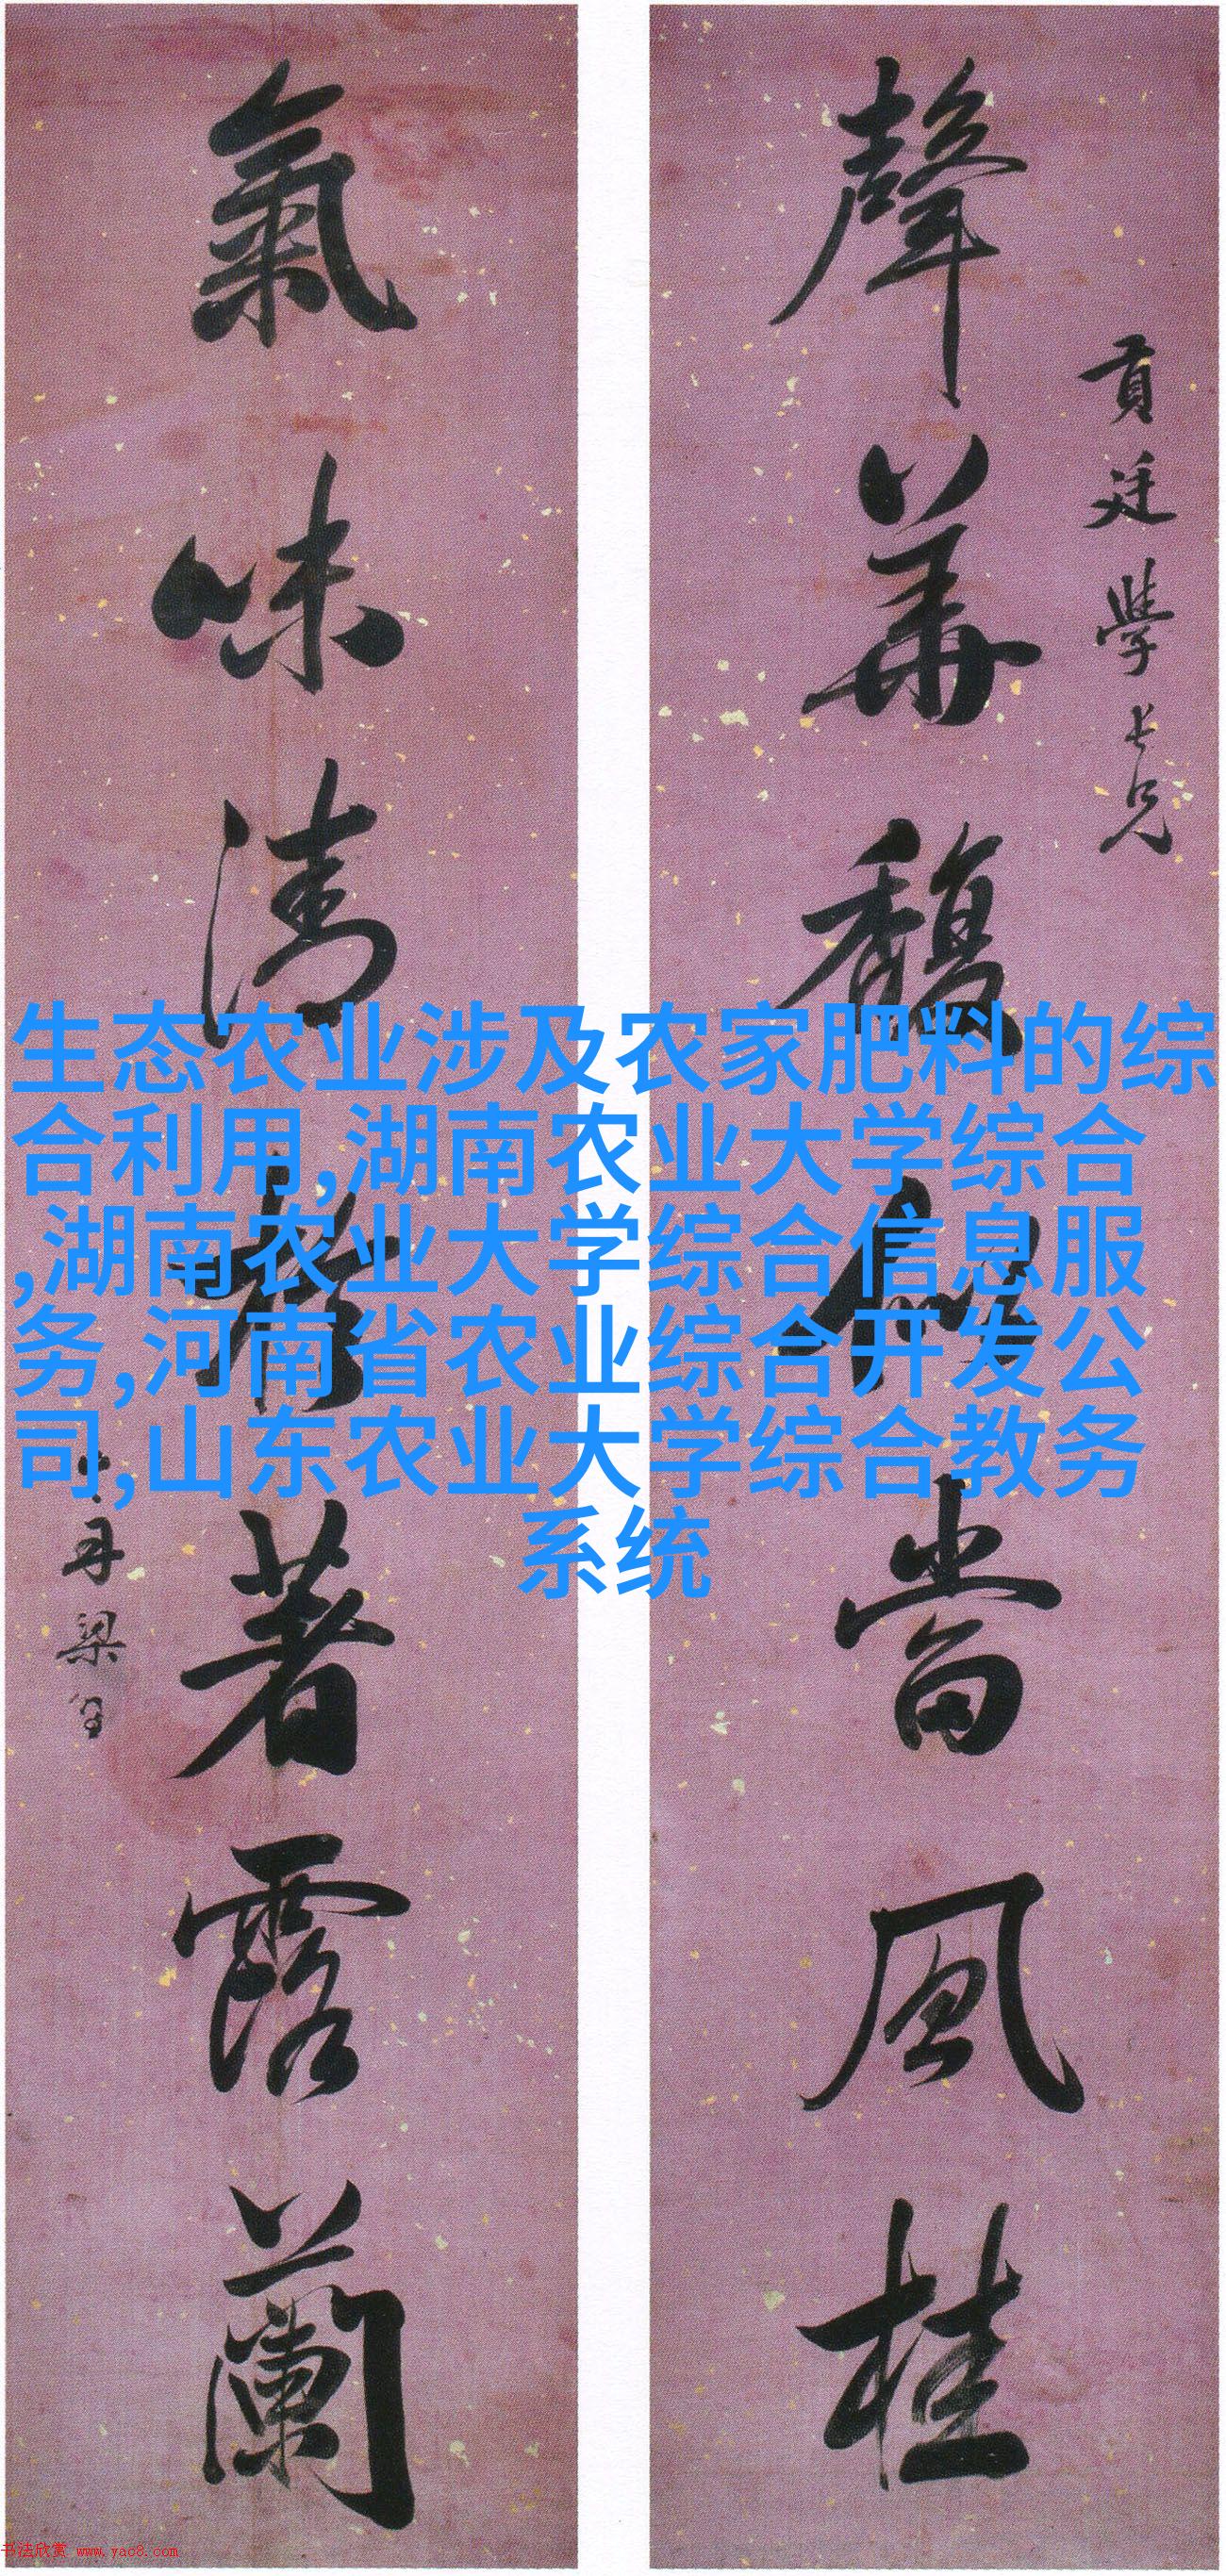 聲華馥欝當風桂
貢廷學長兄
氣味清
著露蘭
山舟梁
生态农业涉及农家肥料的综
合利用,湖南农业大学综合
,湖南农业大学综合信息服
务,河南省农业综合开发公
司,山东农业大学综合教务
系统
书法欣赏 www.yac8.com